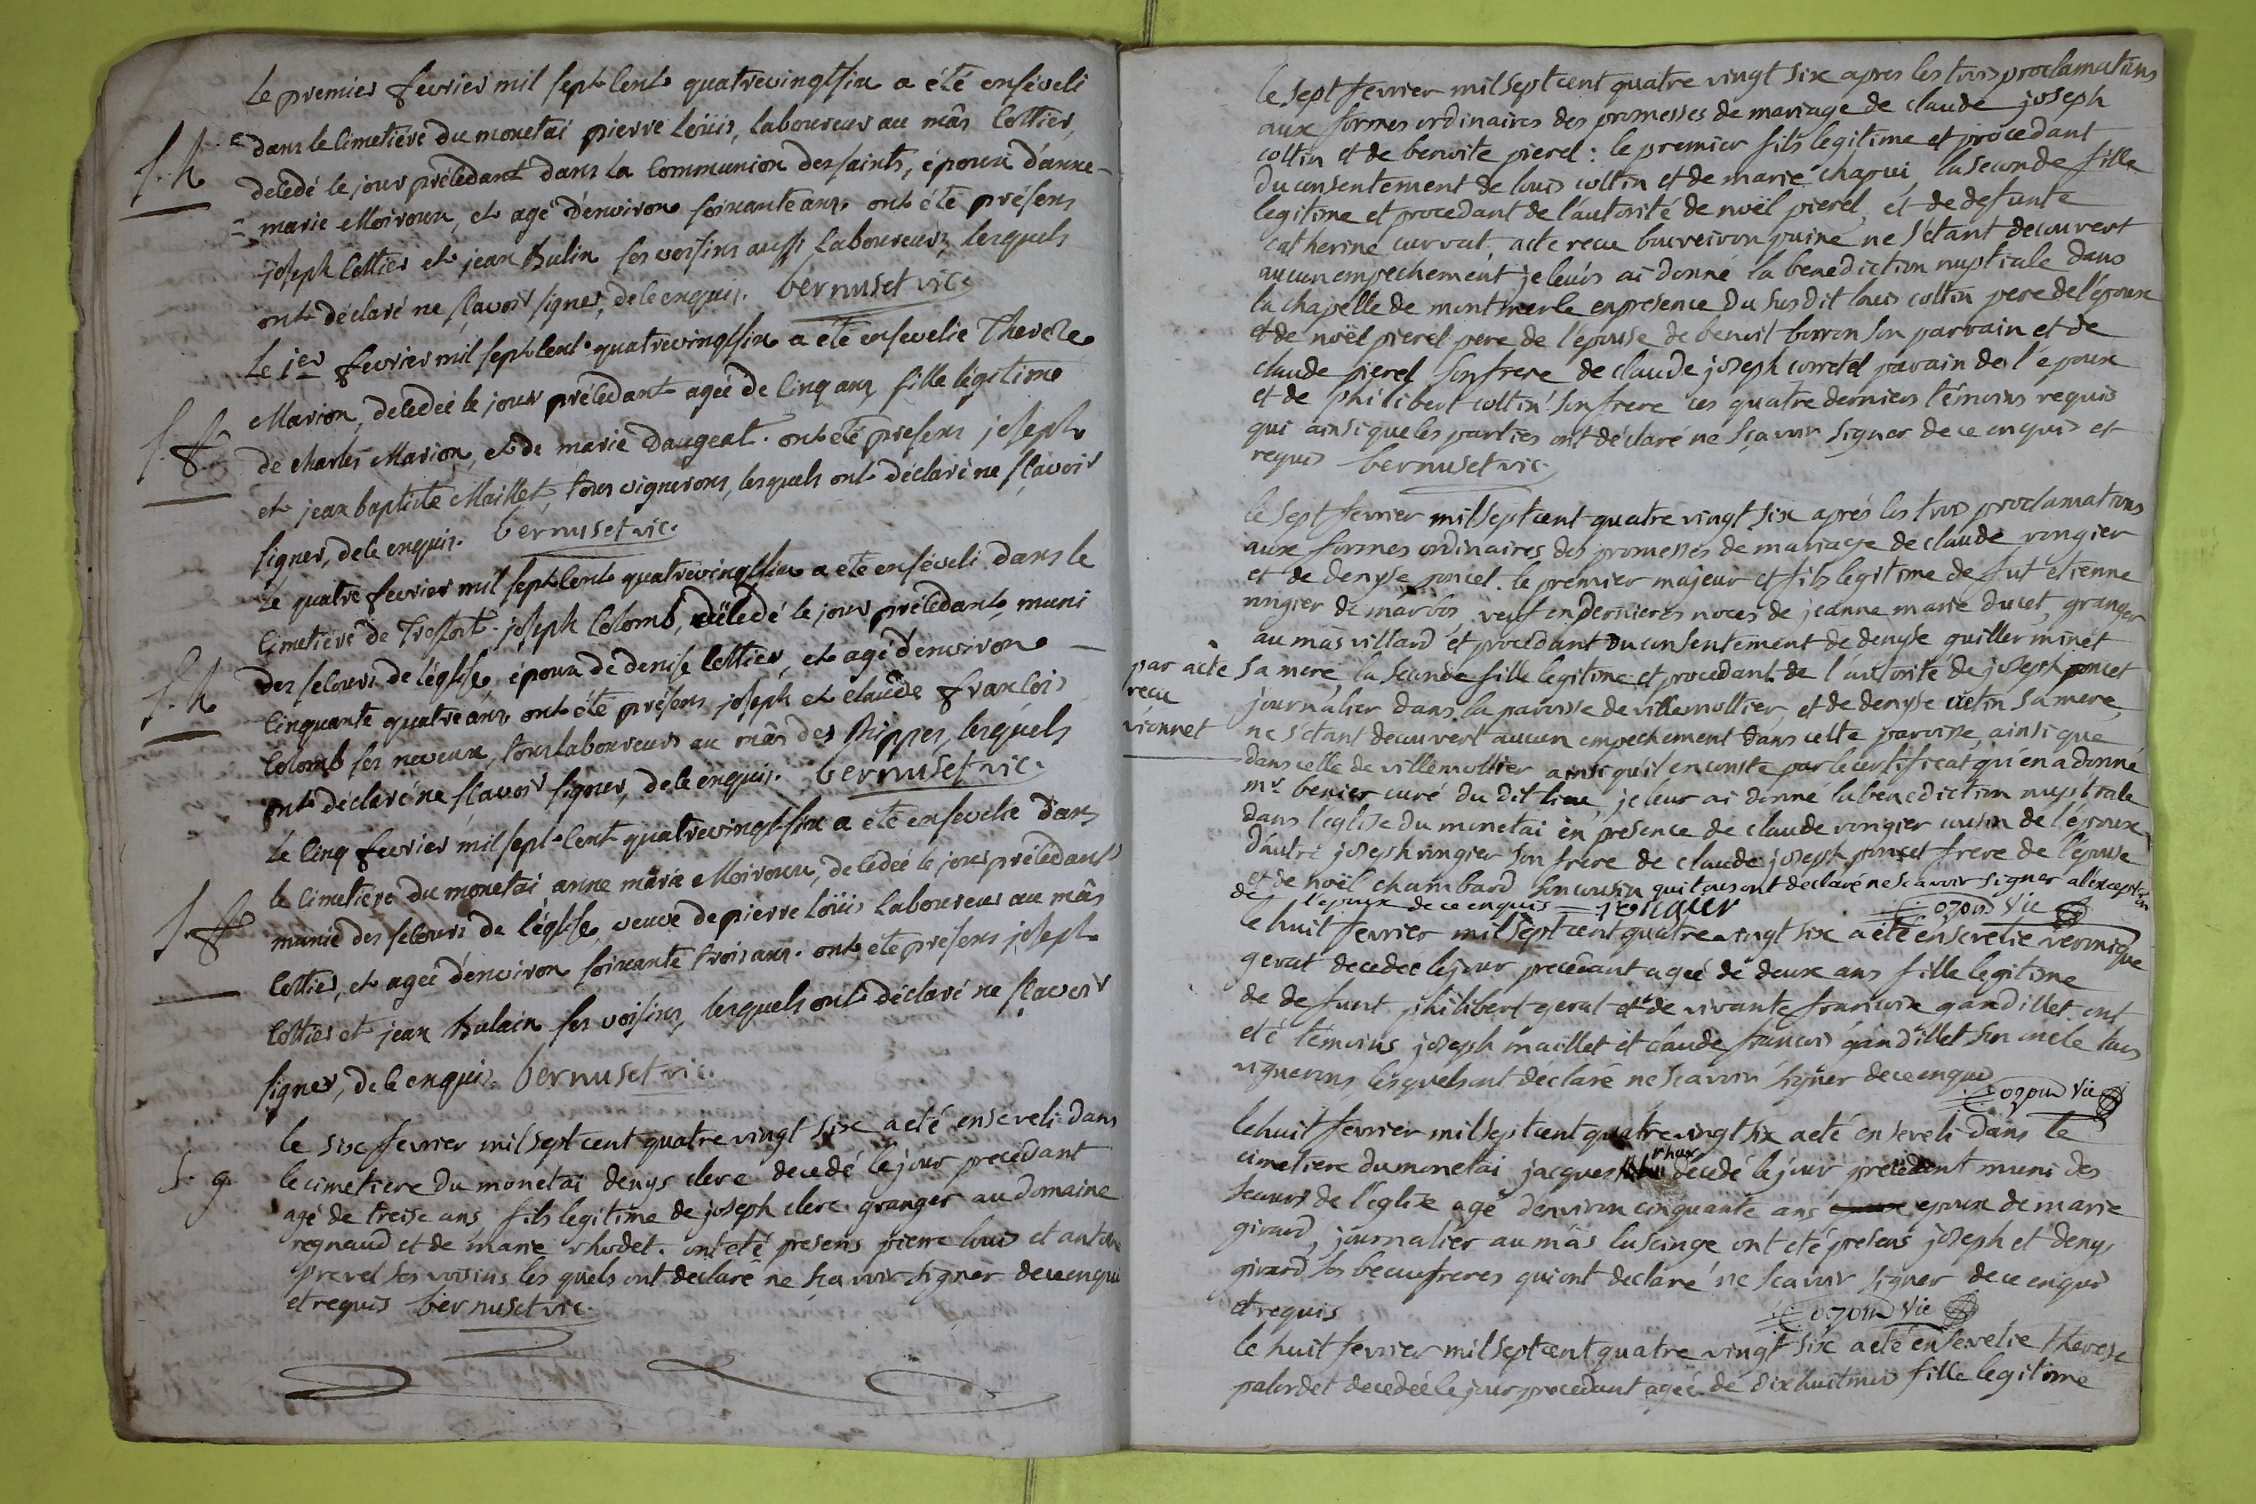 Le premier fevrier mil sept cent quatrevingtsix a été enséveli
S. h. dans le cimetiere du monetai pierre Loüis, laboureur au mâs Cottier,
décédé le jour précédant dans la communion des saints, époux d'anne-
marie Moiroux, et agé d'environ soixante ans. ont été présens
joseph Cottier et jean hulin ses voisins aussi laboureurs, lesquels
ont déclaré ne sçavoir signer, de ce enquis. bernuset vic.
Le 1er fevrier mil sept cent quatrevingtsix a été ensevelie Therese
S. f. Marion, décédée le jour précédant agée de cinq ans fille légitime
de charles Marion, et de marie Daugeat. ont été presens joseph
et jean baptiste Maillet, tous vignerons, lesquels ont déclaré ne sçavoir
signer, de ce enquis. bernuset vic.
Le quatre fevrier mil sept cent quatrevingtsix a été enséveli dans le
cimetiere de Treffort joseph Colomb, décédé le jour précédant, muni
S. h. des secours de l'église, époux de denise Cottier, et agé d'environ
cinquante quatre ans. ont été présens joseph et claude françois
Colomb ses neveux, tous laboureurs au mâs des Rippes, lesquels
ont déclaré ne sçavoir signer, de ce enquis. bernuset vic.
Le cinq fevrier mil sept cent quatrevingt-six a été ensevelie dans
le cimetiere du monetai anne marie Moiroux, décédée le jour précédant
S. f. munie des secours de l'église, veuve de pierre Loüis laboureur au mâs
Cottier, et agée d'environ soixante trois ans. ont été présens joseph
Cottier et jean hulain ses voisins, lesquels ont déclaré ne sçavoir
signer, de ce enquis. bernuset vic.
le six fevrier mil sept cent quatre vingt six a eté enseveli dans
S. g. le cimetiere du monetai denys clere decedé le jour precedant
agé de treise ans, fils legitime de joseph clere granger au domaine
regnaud et de marie rhodet. ont eté presens pierre louis et antoine
prevel ses voisins les quels ont declaré ne sçavoir signer de ce enquis
et requis bernuset vic.
le sept fevrier mil sept cent quatre vingt six apres les trois proclamations
aux formes ordinaires des promesses de mariage de claude joseph
coltin et de benoite pierel : le premier fils legitime et procedant
du consentement de louis coltin et de marie chapui la seconde fille
legitime et procedant de l'autorité de noël pierel, et de defunte
catherine currat. acte recu ne s'étant decouvert
aucun empechement je leurs ai donné la benediction nuptiale dans
la chapelle de montmerle en presence du susdit louis coltin pere de l'époux
et de noël pierel pere de l'épouse de benoit borron son parrain et de
claude pierel son frere de claude joseph corretel parain de l'époux
et de philibert coltin son frere ces quatre derniers témoins requis
qui ainsi que les parties ont déclaré ne sçavoir signer de ce enquis et
requis bernuset vic.
le sept fevrier mil sept cent quatre vingt six aprés les trois proclamations
aux formes ordinaires des promesses de mariage de claude vongier
et de denyse poncet. le premier majeur et fils legitime de fut etienne
vongier de marbos, veuf en dernieres noces de jeanne marie ducet, granger
au mas villard et procedant du consentement de denyse guillerminet
par acte sa mere, la seconde fille legitime et procedant de l'autorité de joseph poncet
recu journalier dans la paroisse de villemottier, et de denyse cretin sa mere,
vionnet ne s'étant decouvert aucun empechement dans cette paroisse, ainsi que
dans celle de villemottier ainsi qu'il en conste par le certificat qu'en a donné
mr. benier curé du dit lieu, je leur ai donné la benediction nuptiale
dans l'eglise du monetai en presence de claude vongier cousin de l'époux,
d'autre joseph vongier son frere de claude joseph poncet frere de l'épouse
et de noël chambard son cousin qui tous ont declaré ne scavoir signer a l'exception
de l'epoux de ce enquis vongier vic
le huit fevrier mil sept cent quatre vingt six a eté ensevelie veronique
gerat decedée le jour precedant agée de deux ans fille legitime
de defunt philibert gerat et de vivante francoise gandillet. ont
eté témoins joseph maillet et claude francois gandillet son oncle tous
vignerons, lesquels ont declaré ne scavoir signer de ce enquis
vic
le huit fevrier mil sept cent quatre vingt six a eté enseveli dans le
cimetiere du monetai jacques rhoux decedé le jour precedent muni des
secours de l'eglise agé d'environ cinquante ans epoux de marie
girard, journalier au mâs ont eté presens joseph et denys
girard ses beaufreres qui ont declaré ne scavoir signer de ce enquis
et requis vic
le huit fevrier mil sept cent quatre vingt six a eté ensevelie therese
palordet decedée le jour precedant agée de dix huit mois fille legitime